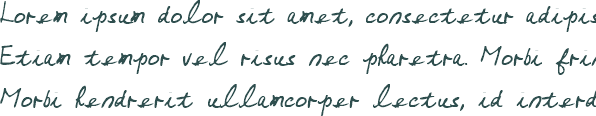 Lorem ipsum dolor sit amet, consectetur adipis
Etiam tempor vel risus nec pharetra. Morbi frin
Morbi hendrerit ullamcorper lectus, id interd